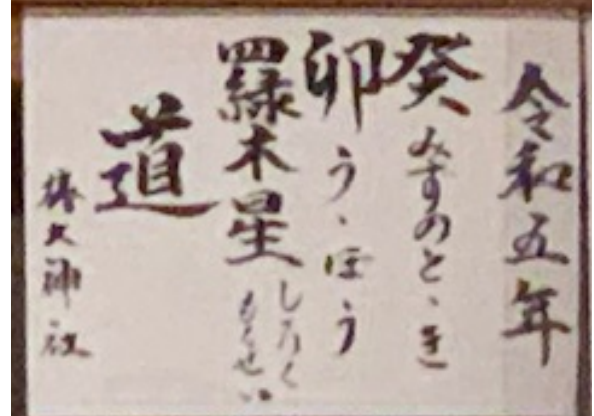 令和五年
癸みずのと、き
卯う、ぼう
四緑木星しろくもくせい
道
椿大神社